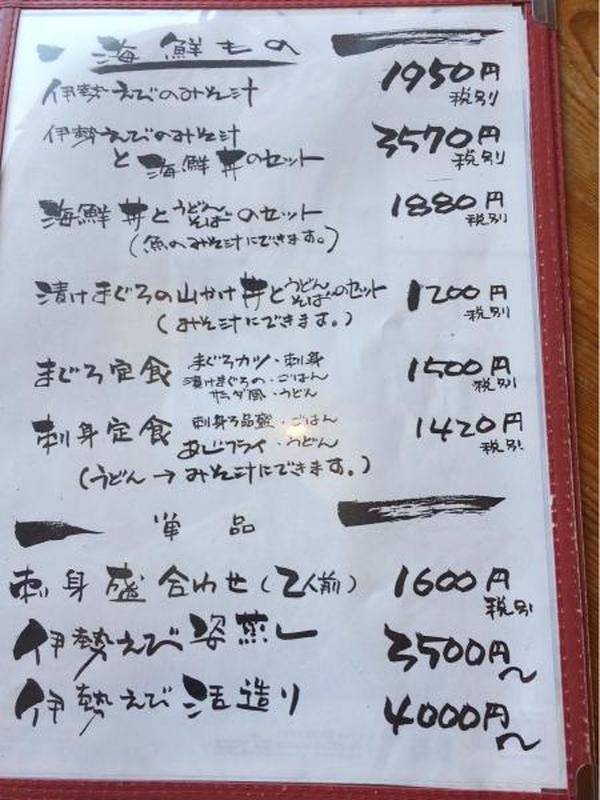 海鮮もの
伊勢えびのみそ汁 1950円
税別
伊勢えびのみそ汁
と海鮮丼のセット 3570円
税別
海鮮丼とうどんそばのセット 1880円
税別
(魚のみそ汁にできます。)
漬けまぐろの山かけ丼とうどんそばのセット 1200円
税別
(みそ汁にできます。)
まぐろ定食 まぐろカツ・刺身 1500円
漬けまぐろの・ごはん 税別
サラダ風・うどん
刺身定食 刺身3品盛・ごはん 1420円
あじフライ・うどん 税別
(うどん→みそ汁にできます。)
単品
刺身盛合わせ(2人前) 1600円
税別
伊勢えび姿蒸し 3500円~
伊勢えび活造り 4000円~